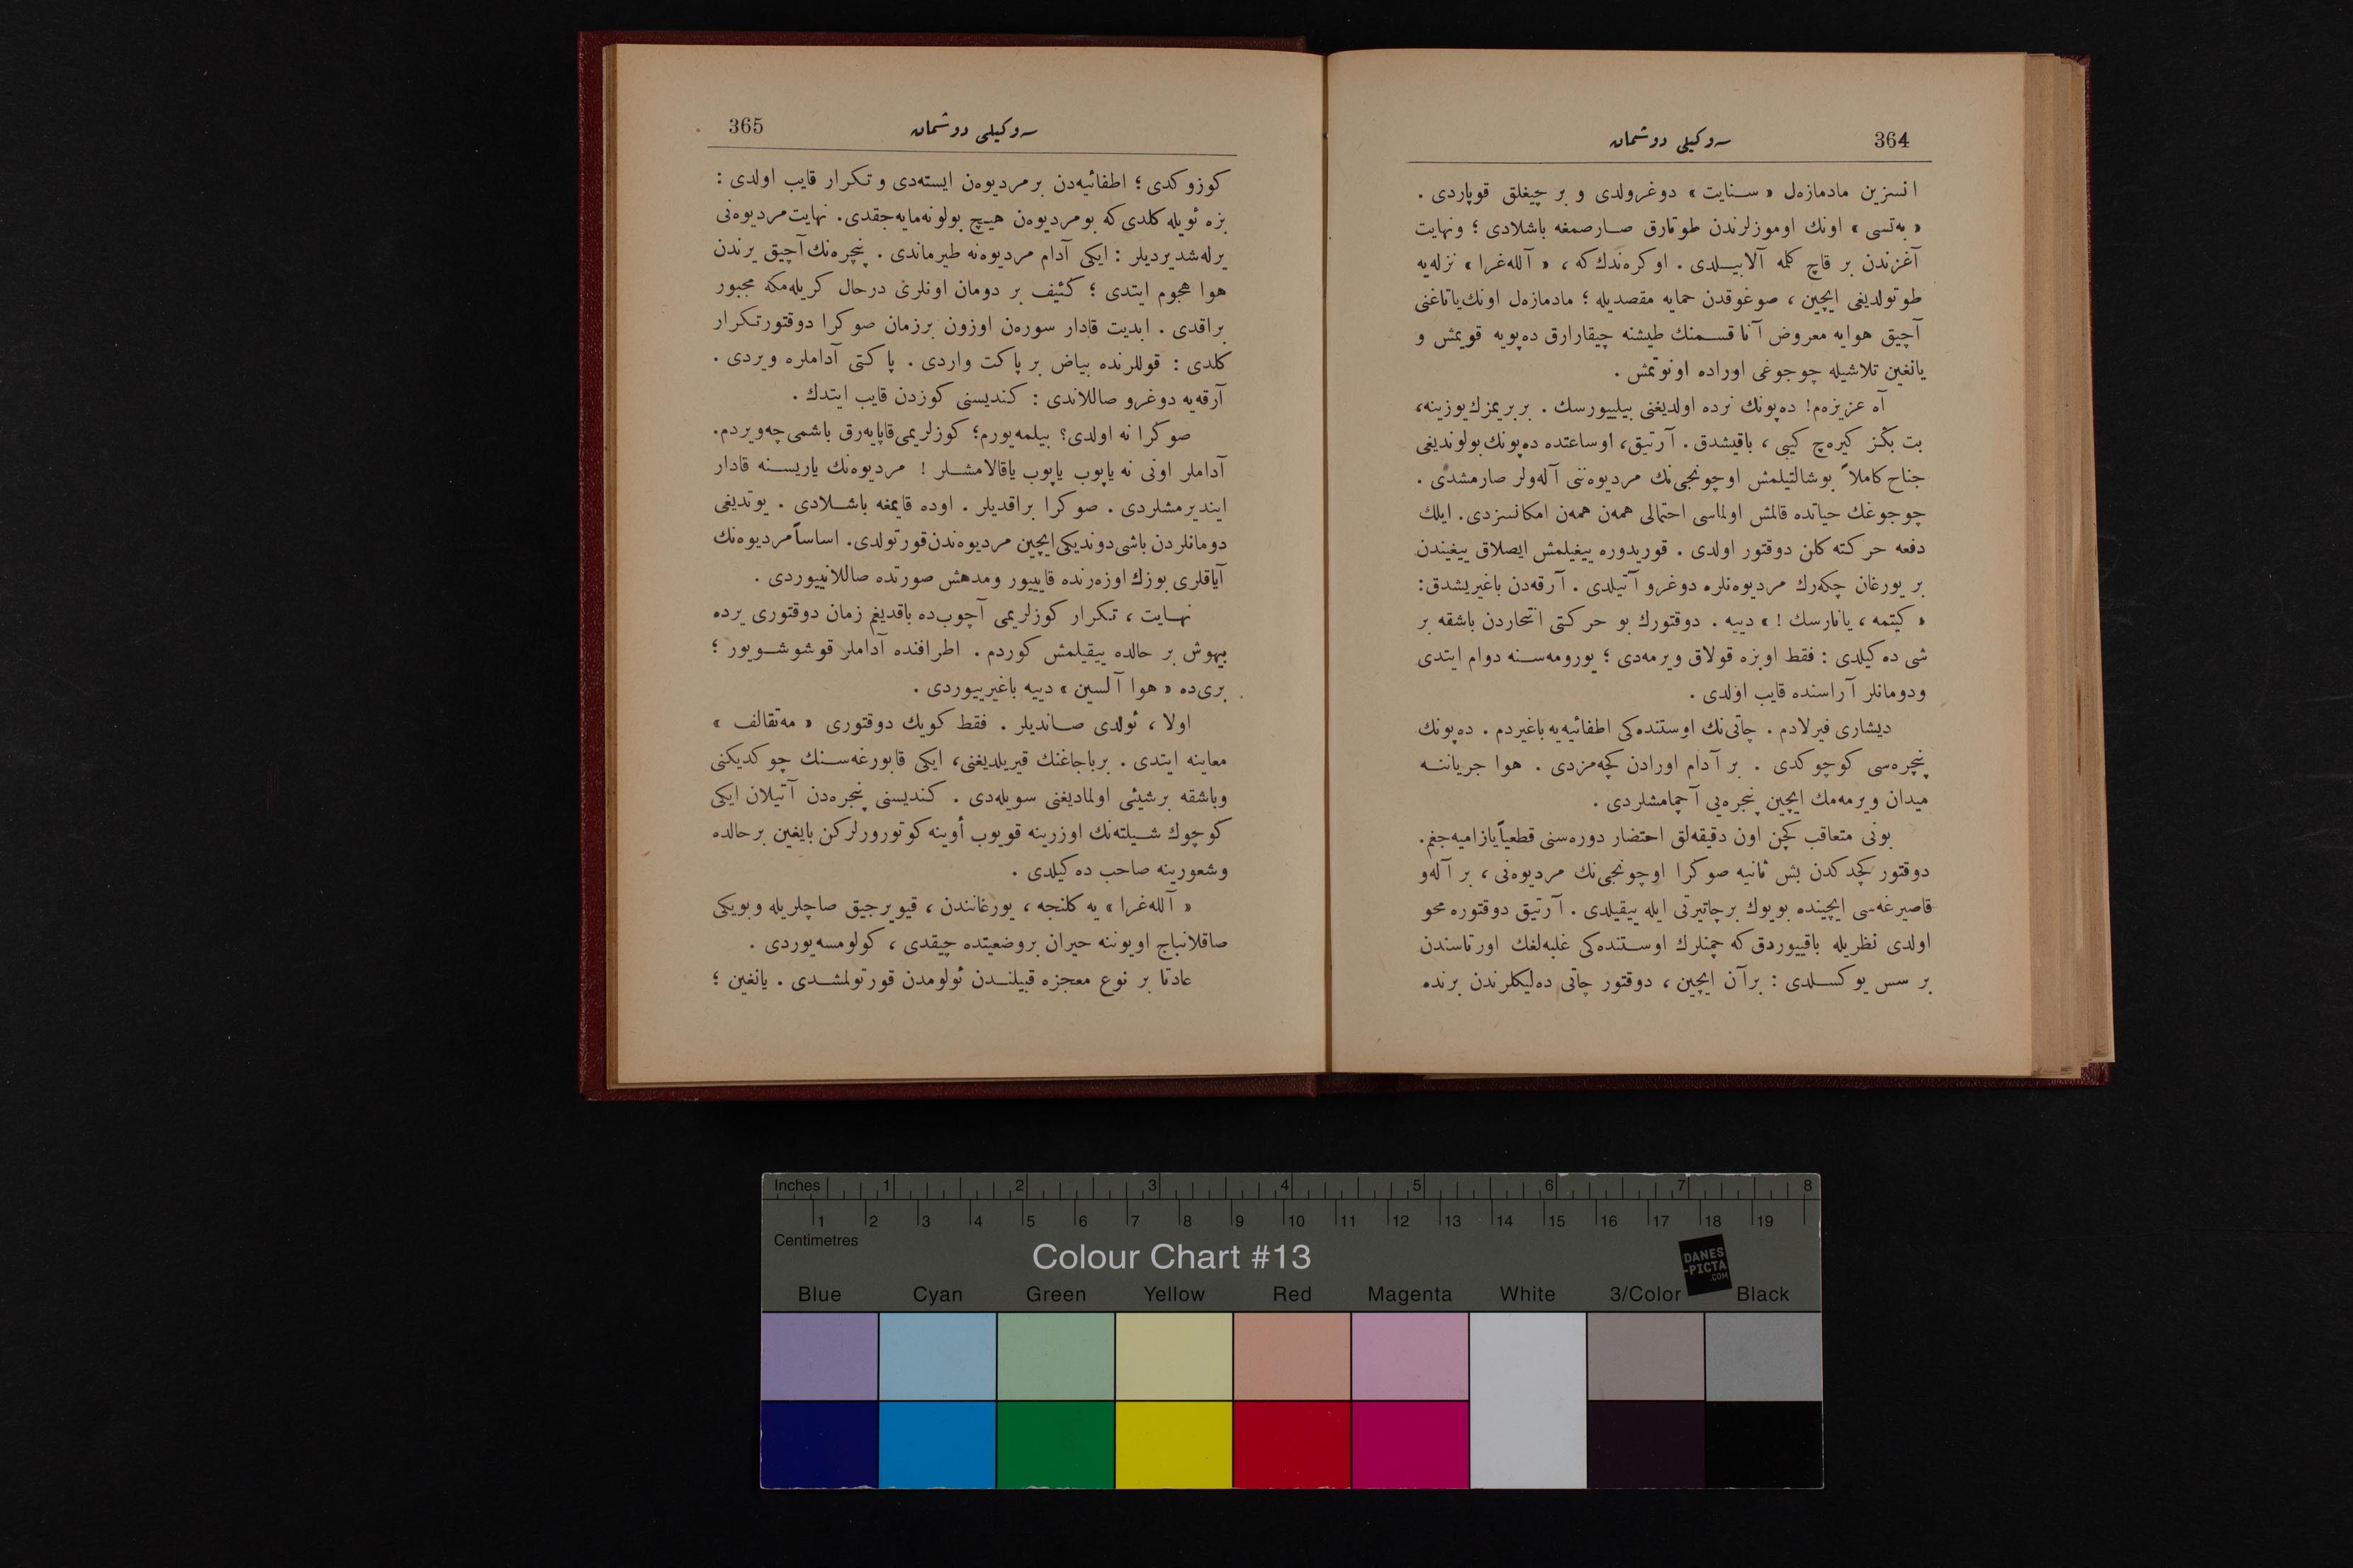 364
سوكيلى دوشمان
انسزين مادمازەل « سنايت » دوغرولدى و بر چيغلق قوپاردى .
« بەتسى » اونك اوموزلرندن طوتارق صارصمغه باشلادى ؛ ونهايت
آغزندن بر قاچ كلمه آلابيلدى . اوكرەندك كه ، « آللەغرا » نزلەيه
طوتولديغى ايچين ، صوغوقدن حمايه مقصديله ؛ مادمازەل اونك ياتاغنى
آچيق هوايه معروض آنا قسمنك طيشنه چيقارارق دەپويه قويمش و
يانغين تلاشيله چوجوغى اوراده اونوتمش .
آه عزيزەم! دەپونك نرده اولديغنى بيلييورسك . بربريمزك يوزينه،
بت بكز كيرەچ كيبى ، باقيشدق . آرتيق، اوساعتده دەپونك بولونديغى
جناح كاملاً بوشالتيلمش اوچونجىنك مرديوەننى آلەولر صارمشدى .
چوجوغك حياتده قالمش اولماسى احتمالى همەن همەن امكانسزدى. ايلك
دفعه حركته كلن دوقتور اولدى . قوريدوره ييغيلمش ايصلاق ييغيندن
بر يورغان چكەرك مرديوەنلره دوغرو آتيلدى . آرقەدن باغيريشدق:
« كيتمه ، يانارسك ! » دييه . دوقتورك بو حركتى انتحاردن باشقه بر
شى دەكيلدى : فقط اوبزه قولاق ويرمەدى ؛ يورومەسنه دوام ايتدى
ودومانلر آراسنده قايب اولدى .
ديشارى فيرلادم . چاتىنك اوستندەكى اطفائيەيه باغيردم . دەپونك
پنچرەسى كوچوكدى . بر آدام اورادن كچەمزدى . هوا جرياننه
ميدان ويرمەمك ايچين پنجرەيى آچمامشلردى .
بونى متعاقب كچن اون دقيقەلق احتضار دورەسنى قطعياً يازاميەجغم.
دوقتور كچدكدن بش ثانيه صوكرا اوچونجىنك مرديوەنى ، بر آلەو
قاصيرغەسى ايچينده بويوك برچاتيرتى ايله ييقيلدى . آرتيق دوقتوره محو
اولدى نظريله باقييوردق كه چمنلرك اوستندەكى غلبەلغك اورتاسندن
بر سس يوكسلدى : برآن ايچين ، دوقتور چاتى دەليكلرندن برنده
365
سوكيلى دوشمان
كوزوكدى ؛ اطفائيەدن برمرديوەن ايستەدى و تكرار قايب اولدى :
بزه ئويله كلدى كه بومرديوەن هيچ بولونەمايەجقدى. نهايت مرديوەنى
يرلەشديرديلر : ايكى آدام مرديوەنه طيرماندى . پنچرەنك آچيق يرندن
هوا هجوم ايتدى ؛ كثيف بر دومان اونلرى درحال كريلەمكه مجبور
براقدى . ابديت قادار سورەن اوزون برزمان صوكرا دوقتورتكرار
كلدى : قوللرنده بياض بر پاكت واردى . پاكتى آداملره ويردى .
آرقەيه دوغرو صاللاندى : كنديسنى كوزدن قايب ايتدك .
صوكرا نه اولدى؟ بيلمەيورم؛ كوزلريمى قاپايەرق باشمى چەويردم.
آداملر اونى نه ياپوب ياپوب ياقالامشلر ! مرديوەنك ياريسنه قادار
اينديرمشلردى . صوكرا براقديلر . اوده قايمغه باشلادى . يوتديغى
دومانلردن باشى دونديكى ايچين مرديوەندن قورتولدى. اساساً مرديوەنك
آياقلرى بوزك اوزەرنده قايييور ومدهش صورتده صاللانييوردى .
نهايت ، تكرار كوزلريمى آچوبده باقديغم زمان دوقتورى يرده
بيهوش بر حالده ييقيلمش كوردم . اطرافنده آداملر قوشوشويور ؛
برىده « هوا آلسين » دييه باغيرييوردى .
اولا ، ئولدى صانديلر . فقط كويك دوقتورى « مەتقالف »
معاينه ايتدى . برباجاغنك قيريلديغنى، ايكى قابورغەسنك چوكديكنى
وباشقه برشيئى اولماديغنى سويلەدى . كنديسنى پنجرەدن آتيلان ايكى
كوچوك شيلتەنك اوزرينه قويوب أوينه كوتورورلركن بايغين برحالده
وشعورينه صاحب دەكيلدى .
« آللەغرا » يه كلنجه ، يورغانندن ، قيويرجيق صاچلريله وبويكى
صاقلانباج اويوننه حيران بروضعيتده چيقدى ، كولومسەيوردى .
عادتا بر نوع معجزه قبيلندن ئولومدن قورتولمشدى . يانغين ؛
Inches 1 2 3 4 5 6 7 8
1 2 3 4 5 6 7 8 9 10 11 12 13 14 15 16 17 18 19
Centimetres
Colour Chart #13
DANES
-PICTA
.COM
Blue Cyan Green Yellow Red Magenta White 3/Color Black